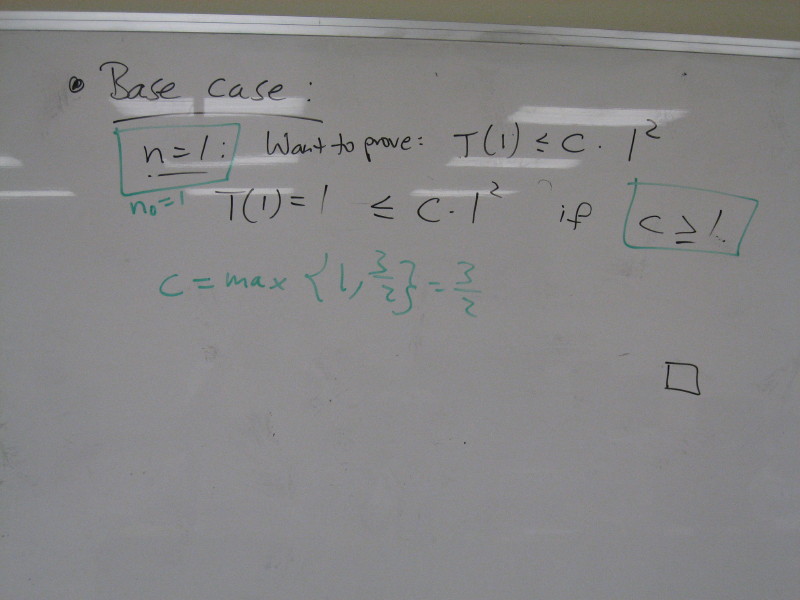 • Base case:
n=1: Want to prove: T(1) ≤ c · 1²
n₀=1 T(1) = 1 ≤ c · 1² if c ≥ 1.
c = max {1, 3/2} = 3/2
□